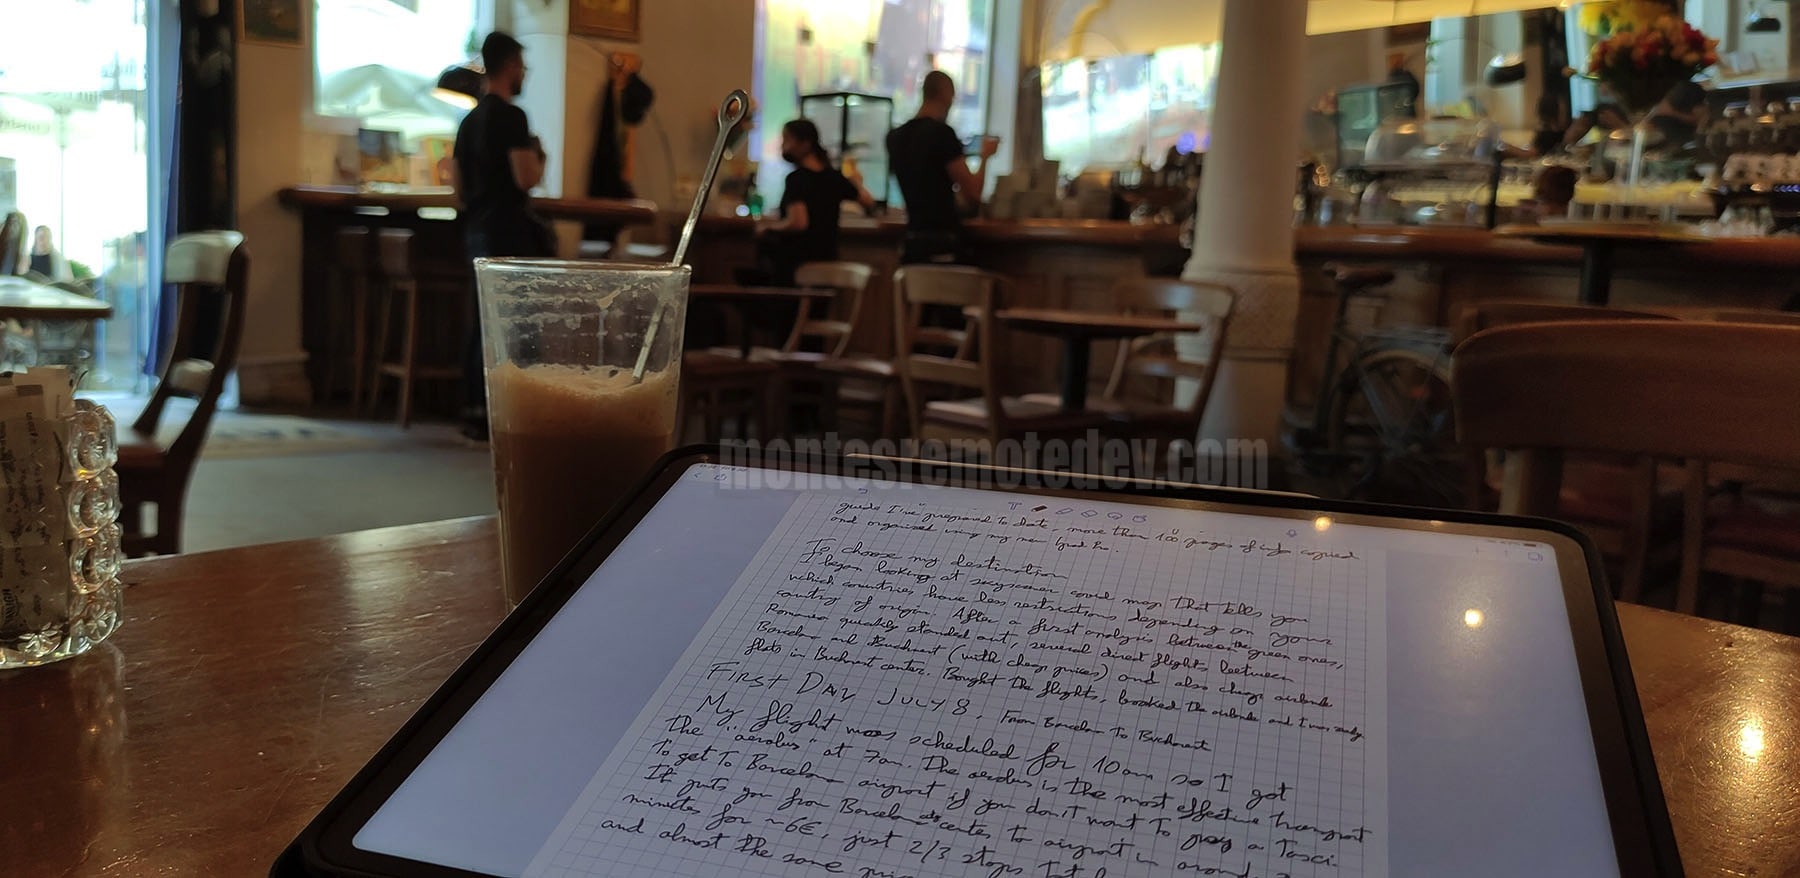 montesremotedev.com
guide I've prepared to date - more than 100 pages of info copied
and organised using my new Ipad Pro.
To choose my destination
I began looking at skyscanner covid map that tells you
which countries have less restrictions depending on your
country of origin. After a first analysis between the green ones,
Romania quickly standed out, several direct flights between
Barcelona and Bucharest (with cheap prices) and also cheap airbnb
flats in Bucharest center. Bought the flights, booked the airbnb and I was ready.
FIRST DAY JULY 8. From Barcelona to Bucharest
My flight was scheduled for 10am so I got
the "aerobus" at 7am. The aerobus is the most effective transport
to get to Barcelona airport if you don't want to pay a Taxi.
It puts you from Barcelona center to airport in around
minutes for ~6€, just 2/3 stops
and almost the same